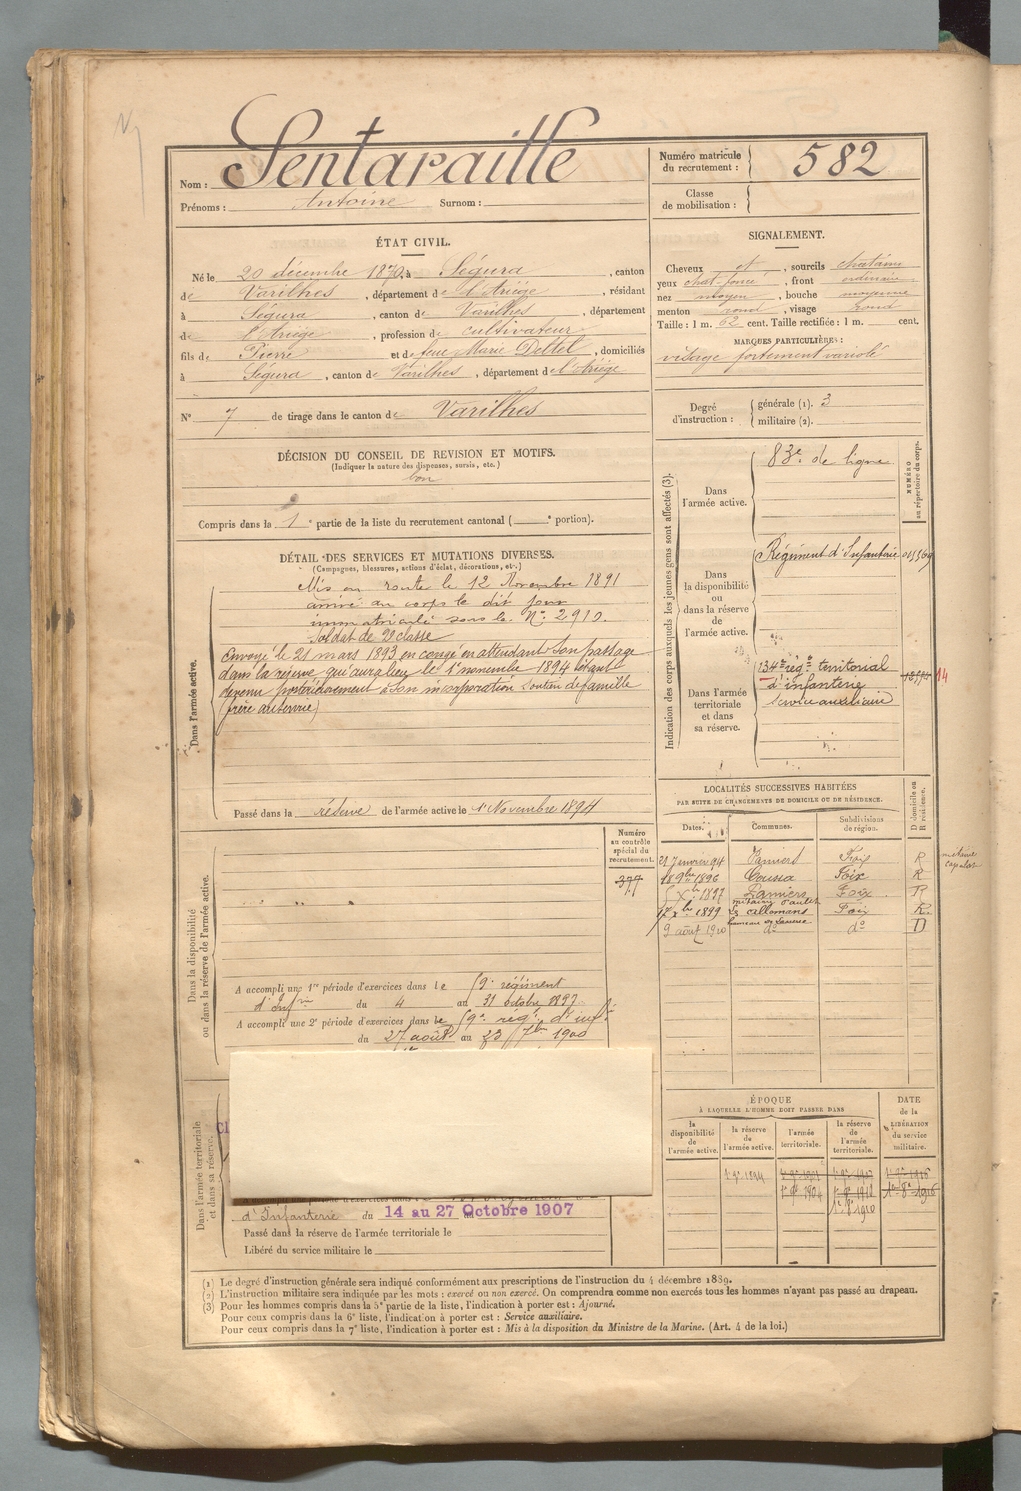 Nom : Sentaraille
Prénoms : Antoine Surnom :
Numéro matricule du recrutement : 582
Classe de mobilisation :
ÉTAT CIVIL.
Né le 20 décembre 1870, à Ségura, canton
de Varilhes, département de l'Ariège, résidant
à Ségura, canton de Varilhes, département
de l'Ariège, profession de cultivateur
fils de Pierre et de feue Marie Deltel, domiciliés
à Ségura, canton de Varilhes, département de l'Ariège
N° 7 de tirage dans le canton de Varilhes
SIGNALEMENT.
Cheveux et, sourcils chatains
yeux chat. foncé, front ordinaire
nez moyen, bouche moyenne
menton rond, visage rond
Taille : 1 m. 62 cent. Taille rectifiée : 1 m. cent.
MARQUES PARTICULIÈRES :
visage fortement variolé
Degré d'instruction : générale (1). 3
militaire (2).
DÉCISION DU CONSEIL DE REVISION ET MOTIFS.
(Indiquer la nature des dispenses, sursis, etc.)
bon
Compris dans la 1e partie de la liste du recrutement cantonal ( e portion).
DÉTAIL DES SERVICES ET MUTATIONS DIVERSES.
(Campagnes, blessures, actions d'éclat, décorations, etc.)
Dans l'armée active.
Mis en route le 12 Novembre 1891
arrivé au corps le dit jour
immatriculé sous le N° 2910.
Soldat de 2e classe
Envoyé le 21 mars 1893 en congé en attendant son passage
dans la réserve qui aura lieu le 1er novembre 1894 étant
devenu postérieurement à son incorporation soutien de famille
Passé dans la réserve de l'armée active le 1er Novembre 1894
Indication des corps auxquels les jeunes gens sont affectés (3).
NUMÉRO au répertoire du corps.
Dans l'armée active.
83e de ligne
Dans la disponibilité ou dans la réserve de l'armée active.
Régiment d'Infanterie
Dans l'armée territoriale et dans sa réserve.
134e rég. territorial
d'infanterie
Service auxiliaire
14
LOCALITÉS SUCCESSIVES HABITÉES
PAR SUITE DE CHANGEMENTS DE DOMICILE OU DE RÉSIDENCE.
Dates. Communes. Subdivisions de région. D domicile ou R résidence.
21 Janvier 94 Pamiers Foix R
18 9bre 1896 Coussa Foix R
Xbre 1897 Pamiers Foix R
17 Xbre 1899 Foix R.
9 août 1900 do do D
Numéro au contrôle spécial du recrutement.
377
Dans la disponibilité ou dans la réserve de l'armée active.
A accompli une 1re période d'exercices dans le 59e régiment
d'Infrie du 4 au 31 octobre 1897
A accompli une 2e période d'exercices dans le 59e rég. d'inf.
du 27 août au 23 7bre 1900
Dans l'armée territoriale et dans sa réserve.
d'Infanterie du 14 au 27 Octobre 1907
Passé dans la réserve de l'armée territoriale le
Libéré du service militaire le
ÉPOQUE
À LAQUELLE L'HOMME DOIT PASSER DANS
la disponibilité de l'armée active.
la réserve de l'armée active.
l'armée territoriale.
la réserve de l'armée territoriale.
DATE de la LIBÉRATION du service militaire.
1er 9bre 1894
1er 9bre 1904
(1) Le degré d'instruction générale sera indiqué conformément aux prescriptions de l'instruction du 4 décembre 1889.
(2) L'instruction militaire sera indiquée par les mots : exercé ou non exercé. On comprendra comme non exercés tous les hommes n'ayant pas passé au drapeau.
(3) Pour les hommes compris dans la 5e partie de la liste, l'indication à porter est : Ajourné.
Pour ceux compris dans la 6e liste, l'indication à porter est : Service auxiliaire.
Pour ceux compris dans la 7e liste, l'indication à porter est : Mis à la disposition du Ministre de la Marine. (Art. 4 de la loi.)